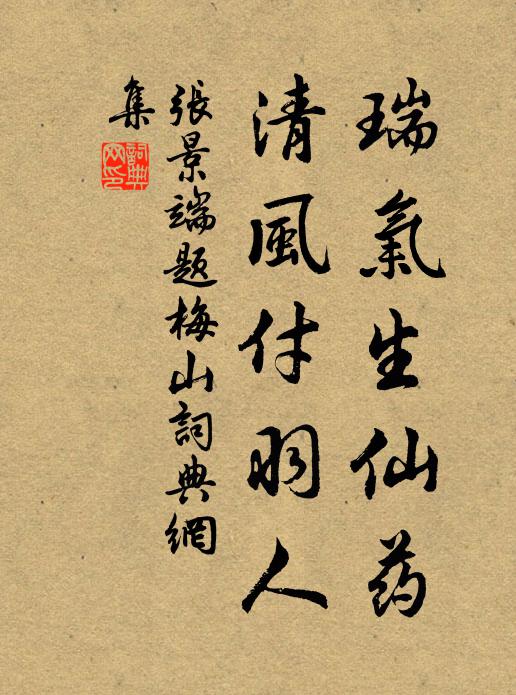 瑞氣生仙药
清風付羽人
張景端题梅山詞典網
集
詞典網印